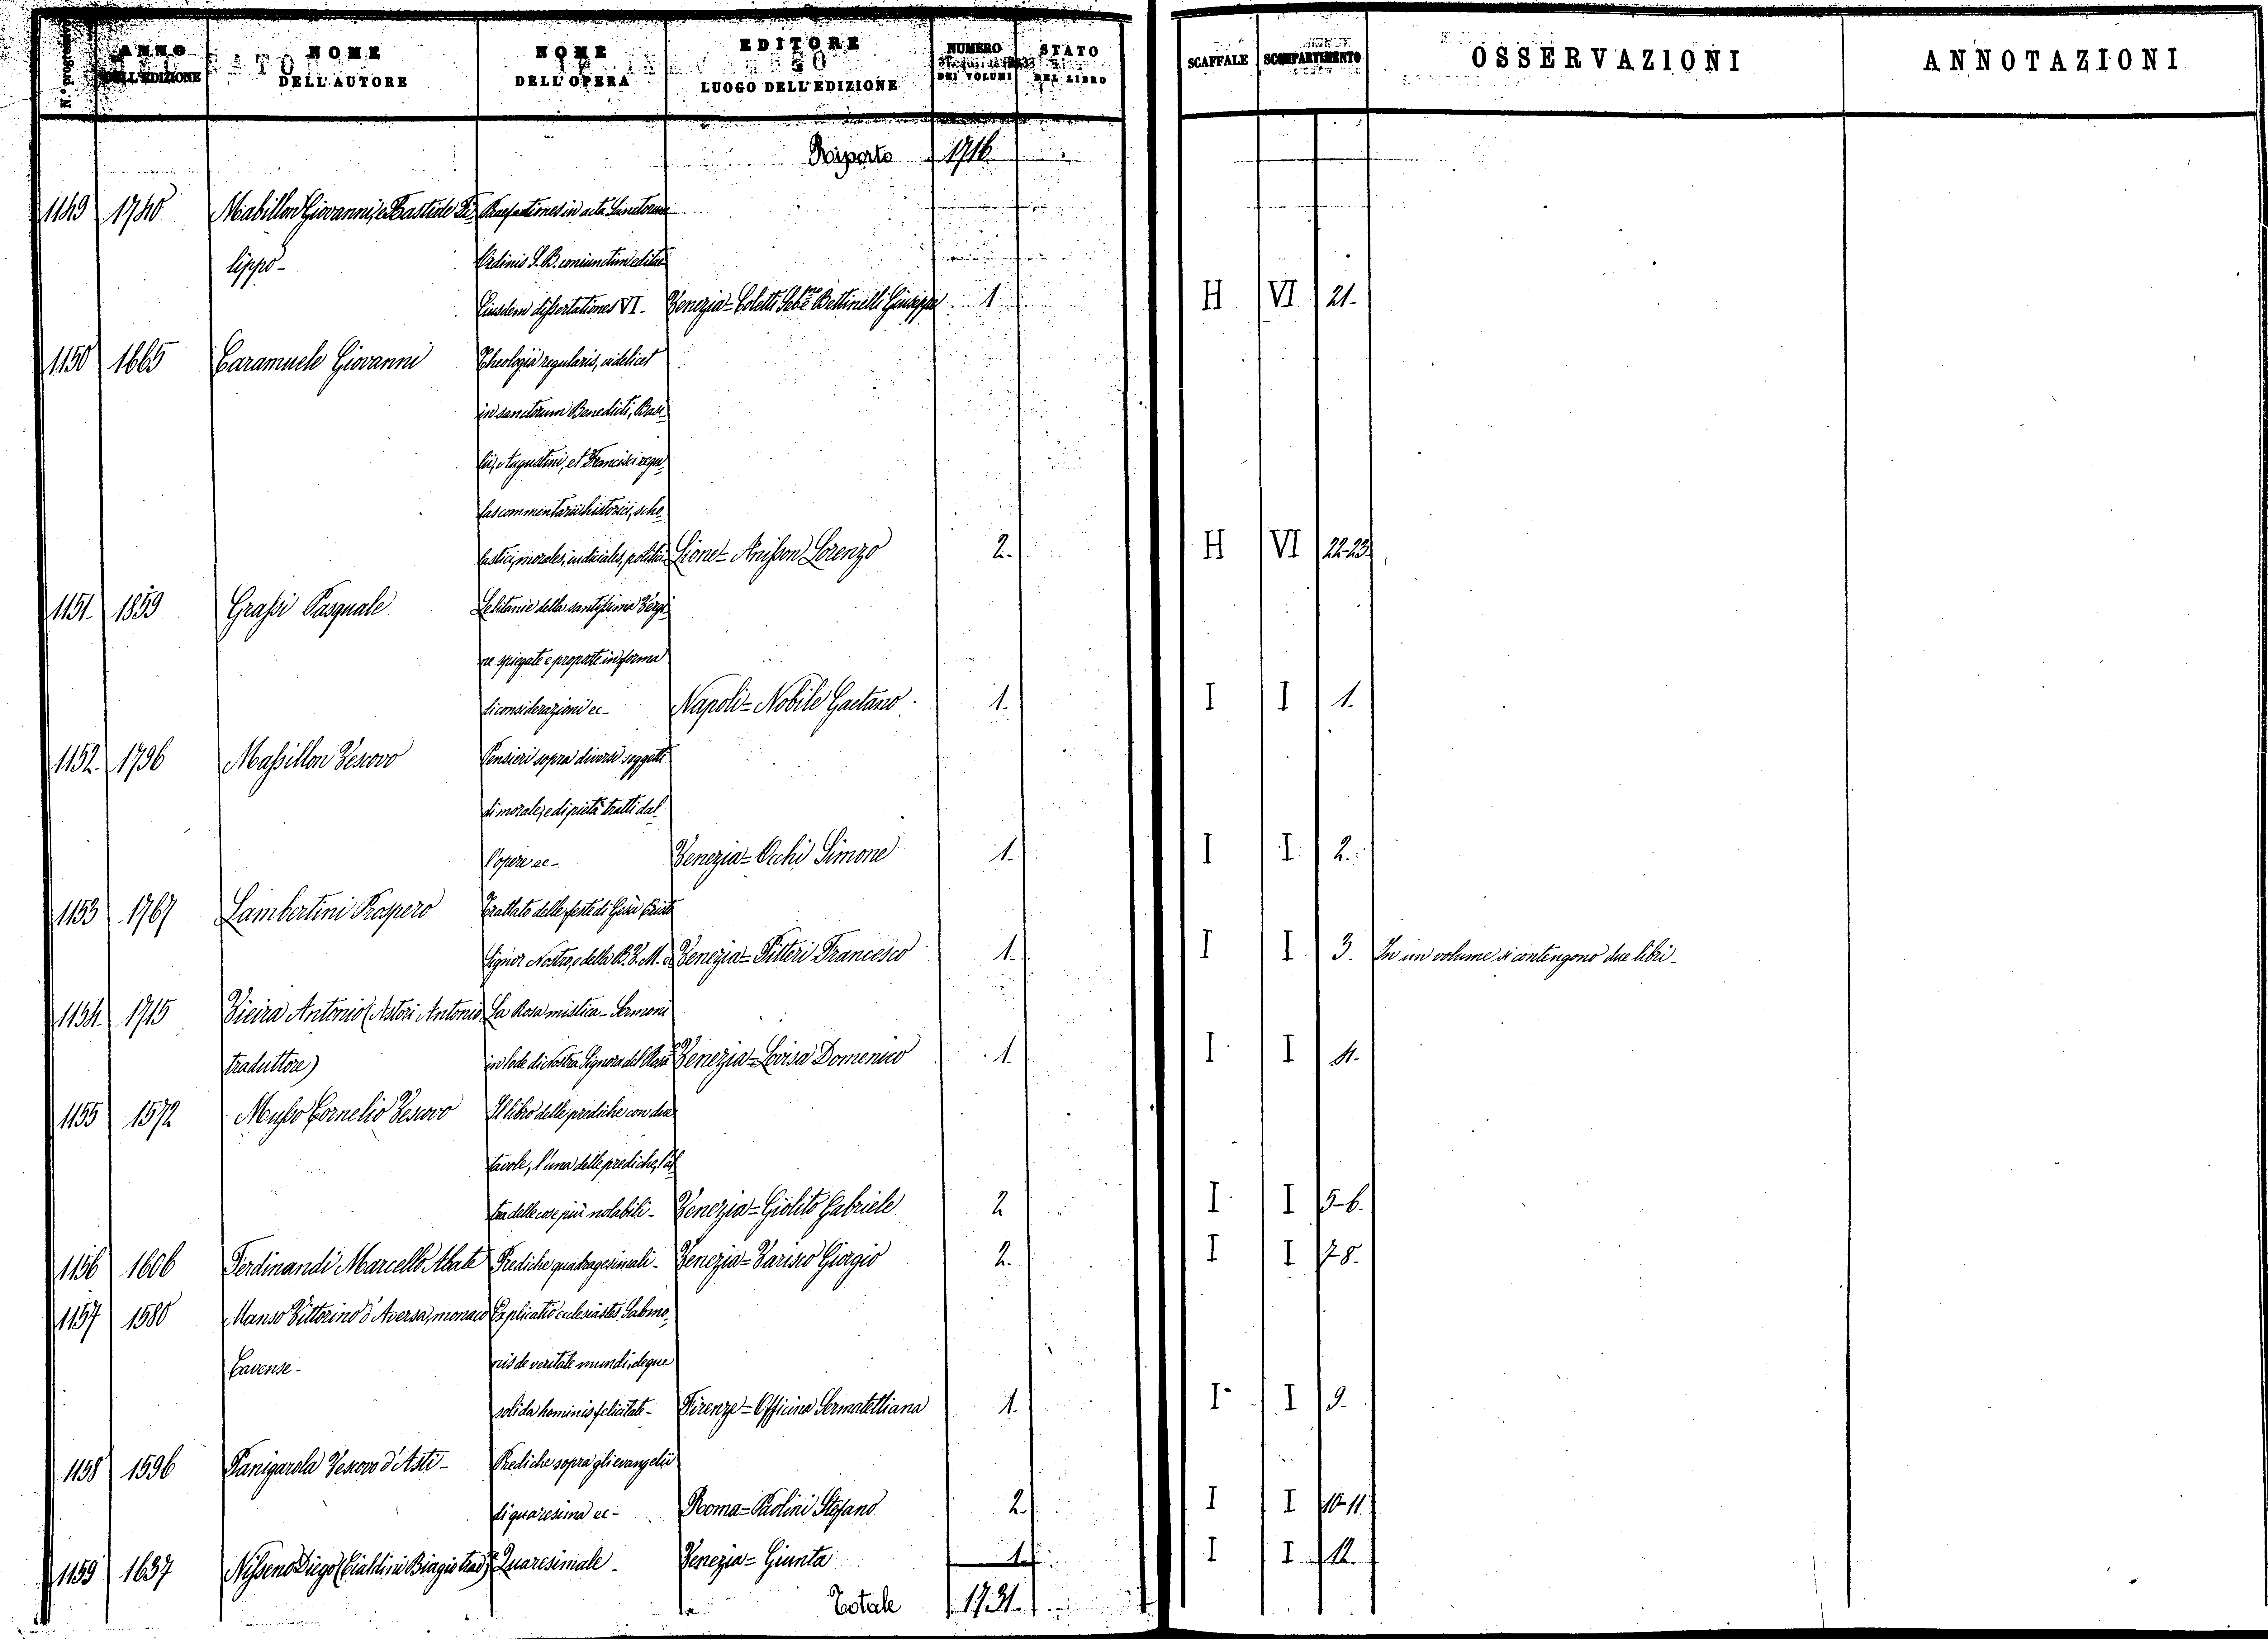 N.° progressivo ANNO DELL'EDIZIONE NOME DELL'AUTORE NOME DELL'OPERA EDITORE LUOGO DELL'EDIZIONE NUMERO DEI VOLUMI STATO DEL LIBRO SCAFFALE SCOMPARTIMENTO OSSERVAZIONI ANNOTAZIONI
Riporto 1716
1149 1740 Mabillon Giovanni, e Bastide Fi- Praefationes in acta Sanctorum
lippo- Ordinis S. B. coniunctim editae
Eiusdem dissertationes VI- Venezia= Coletti Seb.ne Bettinelli Giuseppe 1 H VI 21-
1150 1665 Caramuele Giovanni Theologia regularis, videlicet
in sanctorum Benedicti, Basi-
lii, Augustini, et Francisci regu-
las commentarii historici, scho-
lastici, morales, iudiciales, politici Lione= Anisson Lorenzo 2. H VI 22-23.
1151. 1859 Grassi Pasquale Le litanie della santissima Vergi-
ne spiegate e proposte in forma
di considerazioni ec- Napoli= Nobile Gaetano 1. I I 1.
1152. 1796 Massillon Vescovo Pensieri sopra diversi soggetti
di morale, e di pietà tratti dal-
l'opere ec- Venezia= Occhi Simone 1. I I 2.
1153 1767 Lambertini Prospero Trattato delle feste di Gesù Cristo
Signor Nostro, e della B. V. M. Venezia= Pitteri Francesco 1. I I 3. In un volume si contengono due libri-
1154. 1715 Vieira Antonio (Astori Antonio La Rosa mistica- Sermoni
traduttore) in lode di Nostra Signora del Ros.o Venezia= Lovisa Domenico 1. I I 4.
1155 1572 Musso Cornelio Vescovo Il libro delle prediche con due
tavole, l'una delle prediche, l'al-
tra delle cose più notabili- Venezia= Giolito Gabriele 2 I I 5-6.
1156 1606 Ferdinandi Marcello Abate Prediche quadragesimali- Venezia= Varisco Giorgio 2. I I 7-8.
1157 1580 Manso Vittorino d'Aversa, monaco Explicatio ecclesiastes Salomo-
Cavense- nis de veritate mundi, deque
solida hominis felicitate- Firenze= Officina Sermatelliana 1. I I 9.
1158 1596 Panigarola Vescovo d'Asti- Prediche sopra gli evangelii
di quaresima ec- Roma= Paolini Stefano 2. I I 10-11.
1159 1637 Nisseno Diego (Cialdini Biagio trad.re) Quaresimale- Venezia= Giunta 1. I I 12.
Totale 1731.